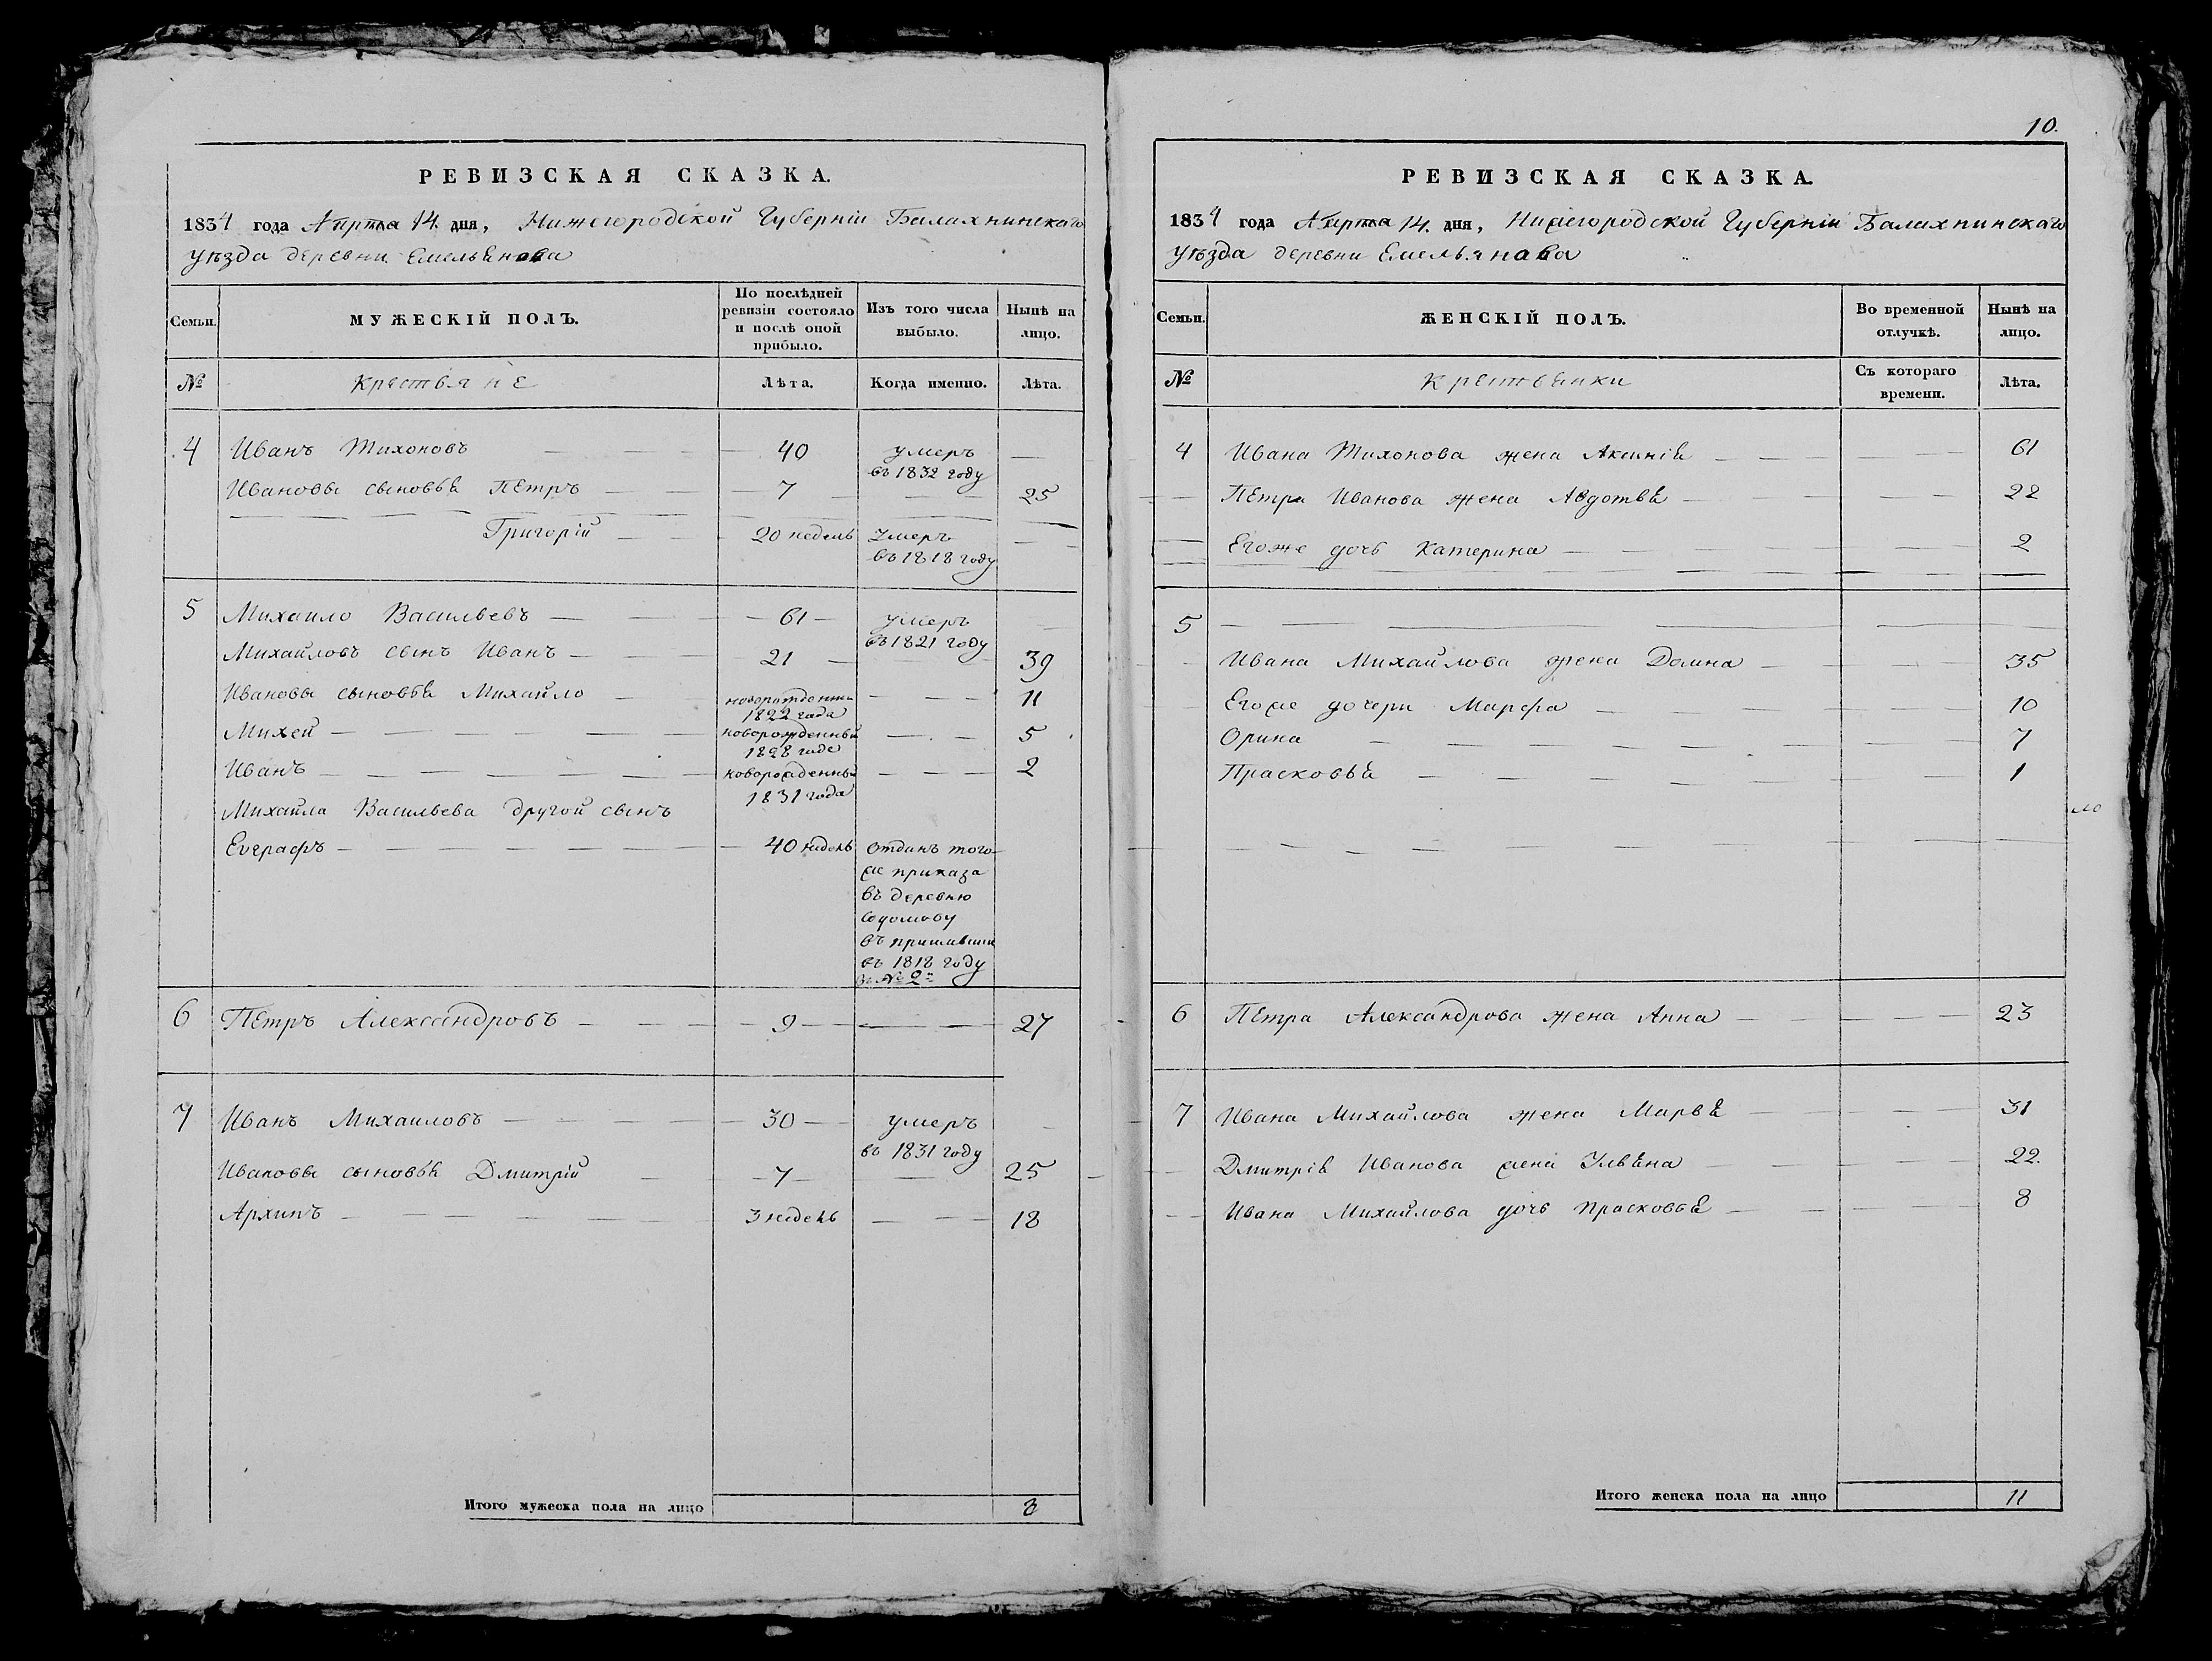 РЕВИЗСКАЯ СКАЗКА.
1834 года Апреля 14. дня, Нижегородской Губерніи Балахнинскаго
уѣзда деревни Емельянова
Семьи.
МУЖЕСКІЙ ПОЛЪ.
По послѣдней ревизіи состояло и послѣ оной прибыло.
Изъ того числа выбыло.
Нынѣ на лицо.
№ Крестьяне Лѣта. Когда именно. Лѣта.
4 Иванъ Тихоновъ — 40 умеръ въ 1832 году —
Ивановы сыновья Петръ — 7 — 25
Григорій — 20 недель умеръ въ 1818 году —
5 Михаило Васильевъ — 61 — умеръ въ 1821 году —
Михайловъ сынъ Иванъ — 21 — 39
Ивановы сыновья Михайло — новорожденны 1822 года — 11
Михей — новорожденный 1828 года — 5
Иванъ — новорожденны 1831 года — 2
Михайла Васильева другой сынъ
Евграфъ — 40 недель отданъ того
же приказа
въ деревню
въ 1818 году
№ 2
6 Петръ Александровъ — 9 — 27
7 Иванъ Михаиловъ — 30 — умеръ въ 1831 году —
Ивановы сыновья Дмитрій — 7 — 25
Архипъ — 3 недель — 18
Итого мужеска пола на лицо 8
10.
РЕВИЗСКАЯ СКАЗКА.
1834 года Апреля 14. дня, Нижегородской Губерніи Балахнинскаго
уѣзда деревни Емельянова
Семьи.
ЖЕНСКІЙ ПОЛЪ.
Во временной отлучкѣ.
Нынѣ на лицо.
№ Крестьянки Съ котораго времени. Лѣта.
4 Ивана Тихонова жена Аксинія — 61
Петра Иванова жена Авдотья — 22
Егоже дочь Катерина — 2
5 —
Ивана Михайлова жена Домна — 35
Егоже дочери Марфа — 10
Орина — 7
Прасковья — 1
ло
6 Петра Александрова жена Анна — 23
7 Ивана Михайлова жена Марья — 31
Дмитрія Иванова жена Ульяна — 22.
Ивана Михайлова дочь Прасковья — 8
Итого женска пола на лицо 11